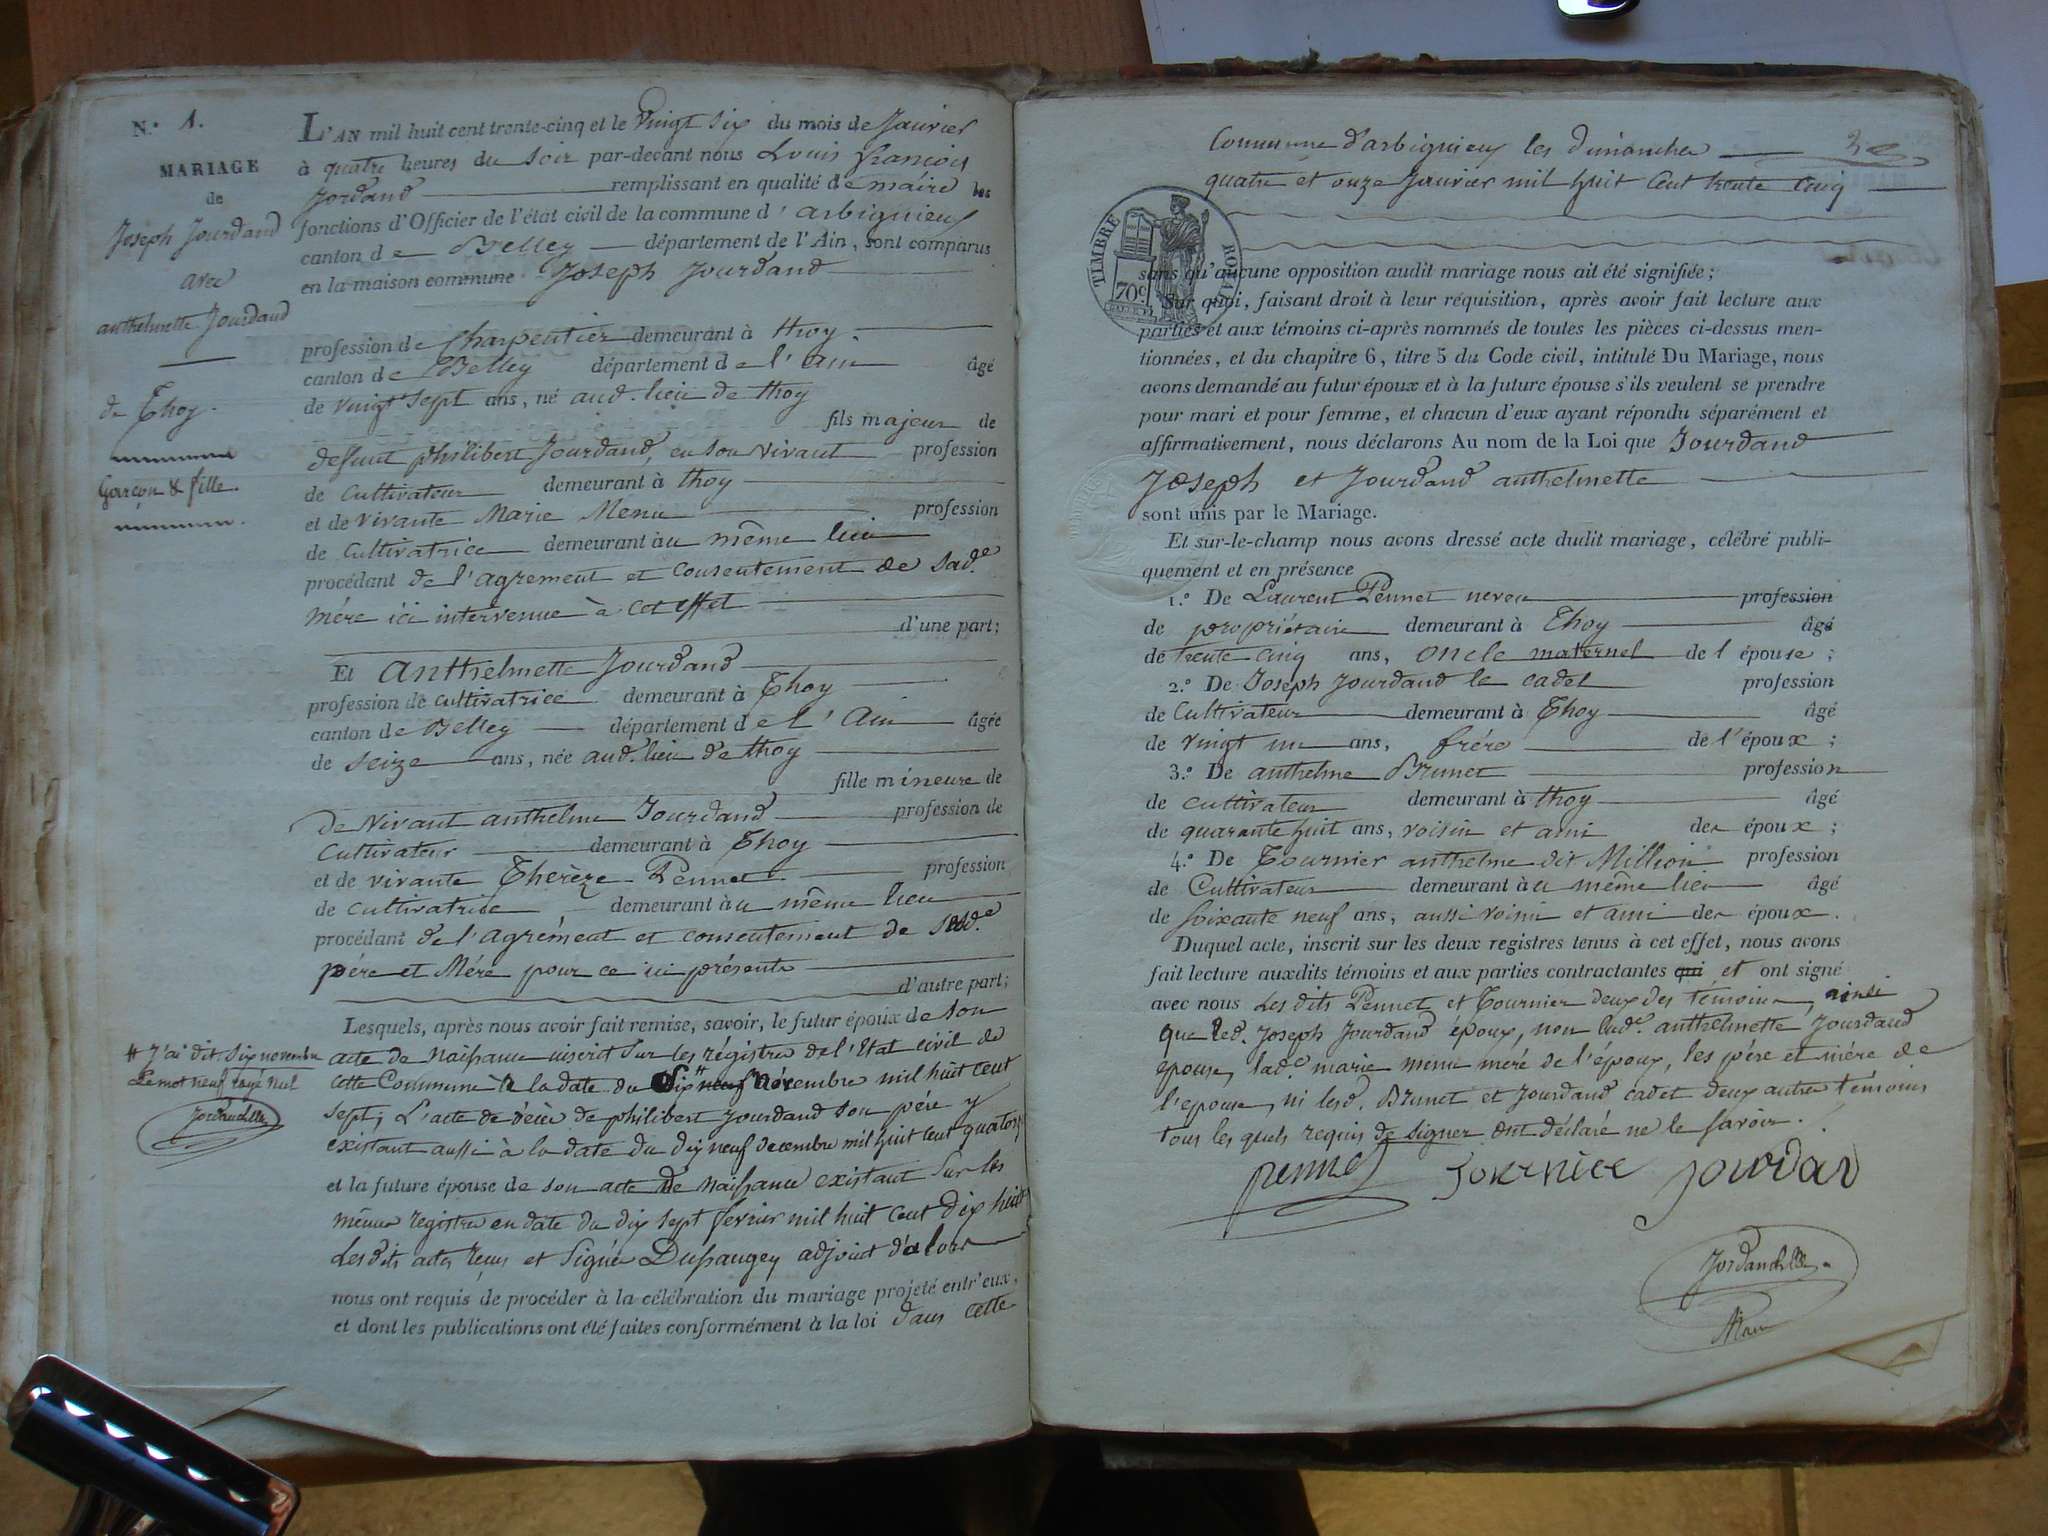 N.° 1.
MARIAGE
de
Joseph Jourdand
avec
anthelmette Jourdand
de Thoy.
Garçon & fille.
# J'ai dit. Six novembre
Le mot neuf rayé nul
L'AN mil huit cent trente-cinq et le Vingt Six du mois de Janvier
à quatre heures du Soir par-devant nous Louis françois
Jordand remplissant en qualité de maire les
fonctions d'Officier de l'état civil de la commune d'arbignieu
canton de Belley département de l'Ain, sont comparus
en la maison commune Joseph Jourdand
profession de Charpentier demeurant à thoy
canton de Belley département de l'ain âgé
de vingt sept ans, né aud. lieu de thoy
fils majeur de
defunt philibert Jourdand, en son vivant profession
de Cultivateur demeurant à thoy
et de vivante Marie Menu profession
de Cultivatrice demeurant au même lieu
procédant de l'agrement et consentement de sad.e
mére ici intervenue à cet effet
d'une part;
Et anthelmette Jourdand
profession de cultivatrice demeurant à Thoy
canton de Belley département de l'Ain âgée
de seize ans, née aud. lieu de thoy
fille mineure de
de vivant anthelme Jourdand profession de
Cultivateur demeurant à Thoy
et de vivante Therèze Pennet profession
de cultivatrice demeurant au même lieu
procédant de l'agrément et consentement de sesd.
pére et Mére pour ce ici présents
d'autre part;
Lesquels, après nous avoir fait remise, savoir, le futur époux de son
acte de naissance inscrit sur les régistres de l'Etat civil de
cette Commune à la date du Six # neuf Novembre mil huit cent
sept; L'acte de décès de philibert Jourdand son pére y
existant aussi à la date du dix neuf decembre mil huit cent quatorze
et la future épouse de son acte de naissance existant sur les
mêmes registres en date du dix sept fevrier mil huit cent dix huit
Lesdits actes reçus et signés Dupaugey adjoint d'alors
nous ont requis de procéder à la célébration du mariage projeté entr'eux,
et dont les publications ont été faites conformément à la loi dans cette
Commune d'arbignieu les dimanches
quatre et onze Janvier mil huit Cent trente cinq
TIMBRE ROYAL
70c.
sans qu'aucune opposition audit mariage nous ait été signifiée;
Sur quoi, faisant droit à leur réquisition, après avoir fait lecture aux
parties et aux témoins ci-après nommés de toutes les pièces ci-dessus men-
tionnées, et du chapitre 6, titre 5 du Code civil, intitulé Du Mariage, nous
avons demandé au futur époux et à la future épouse s'ils veulent se prendre
pour mari et pour femme, et chacun d'eux ayant répondu séparément et
affirmativement, nous déclarons Au nom de la Loi que Jourdand
Joseph et Jourdand anthelmette
sont unis par le Mariage.
Et sur-le-champ nous avons dressé acte dudit mariage, célébré publi-
quement et en présence
1.° De Laurent Pennet neveu profession
de propriétaire demeurant à Thoy âgé
de trente cinq ans, oncle maternel de l'épouse;
2.° De Joseph Jourdand le cadet profession
de Cultivateur demeurant à Thoy âgé
de vingt un ans, frére de l'époux;
3.° De anthelme Brunet profession
de cultivateur demeurant à thoy âgé
de quarante huit ans, voisin et ami des époux;
4.° De Tournier anthelme dit Million profession
de Cultivateur demeurant au même lieu âgé
de soixante neuf ans, aussi voisin et ami des époux.
Duquel acte, inscrit sur les deux registres tenus à cet effet, nous avons
fait lecture auxdits témoins et aux parties contractantes qui et ont signé
avec nous Lesdits Pennet et Tournier deux des témoins, ainsi
que led. Joseph Jourdand époux, non lad.e anthelmette Jourdand
epouse, lad.e marie menu meré de l'époux, les pére et mére de
l'epouse, ni lesd. Brunet et Jourdand cadet deux autres témoins
tous les quels requis de signer ont déclaré ne le savoir.
pennet Tournier jourdan